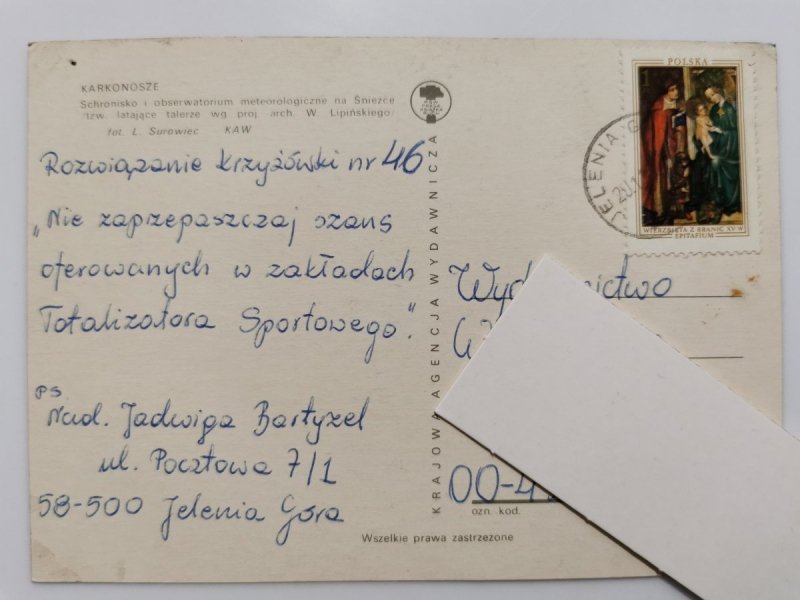 KARKONOSZE
Schronisko i obserwatorium meteorologiczne na Śnieżce
tzw. latające talerze wg proj. arch. W. Lipińskiego
fot. L. Surowiec KAW
Rozwiązanie krzyżówki nr 46
„Nie zaprzepaszczaj szans
oferowanych w zakładach
Totalizatora Sportowego."
PS
Nad. Jadwiga Bartyzel
ul. Pocztowa 7/1
58-500 Jelenia Góra
Wszelkie prawa zastrzeżone
KRAJOWA AGENCJA WYDAWNICZA
POLSKA
WIERZBIĘTA Z BRANIC XV W
EPITAFIUM
JELENIA G
00-4
ozn. kod.